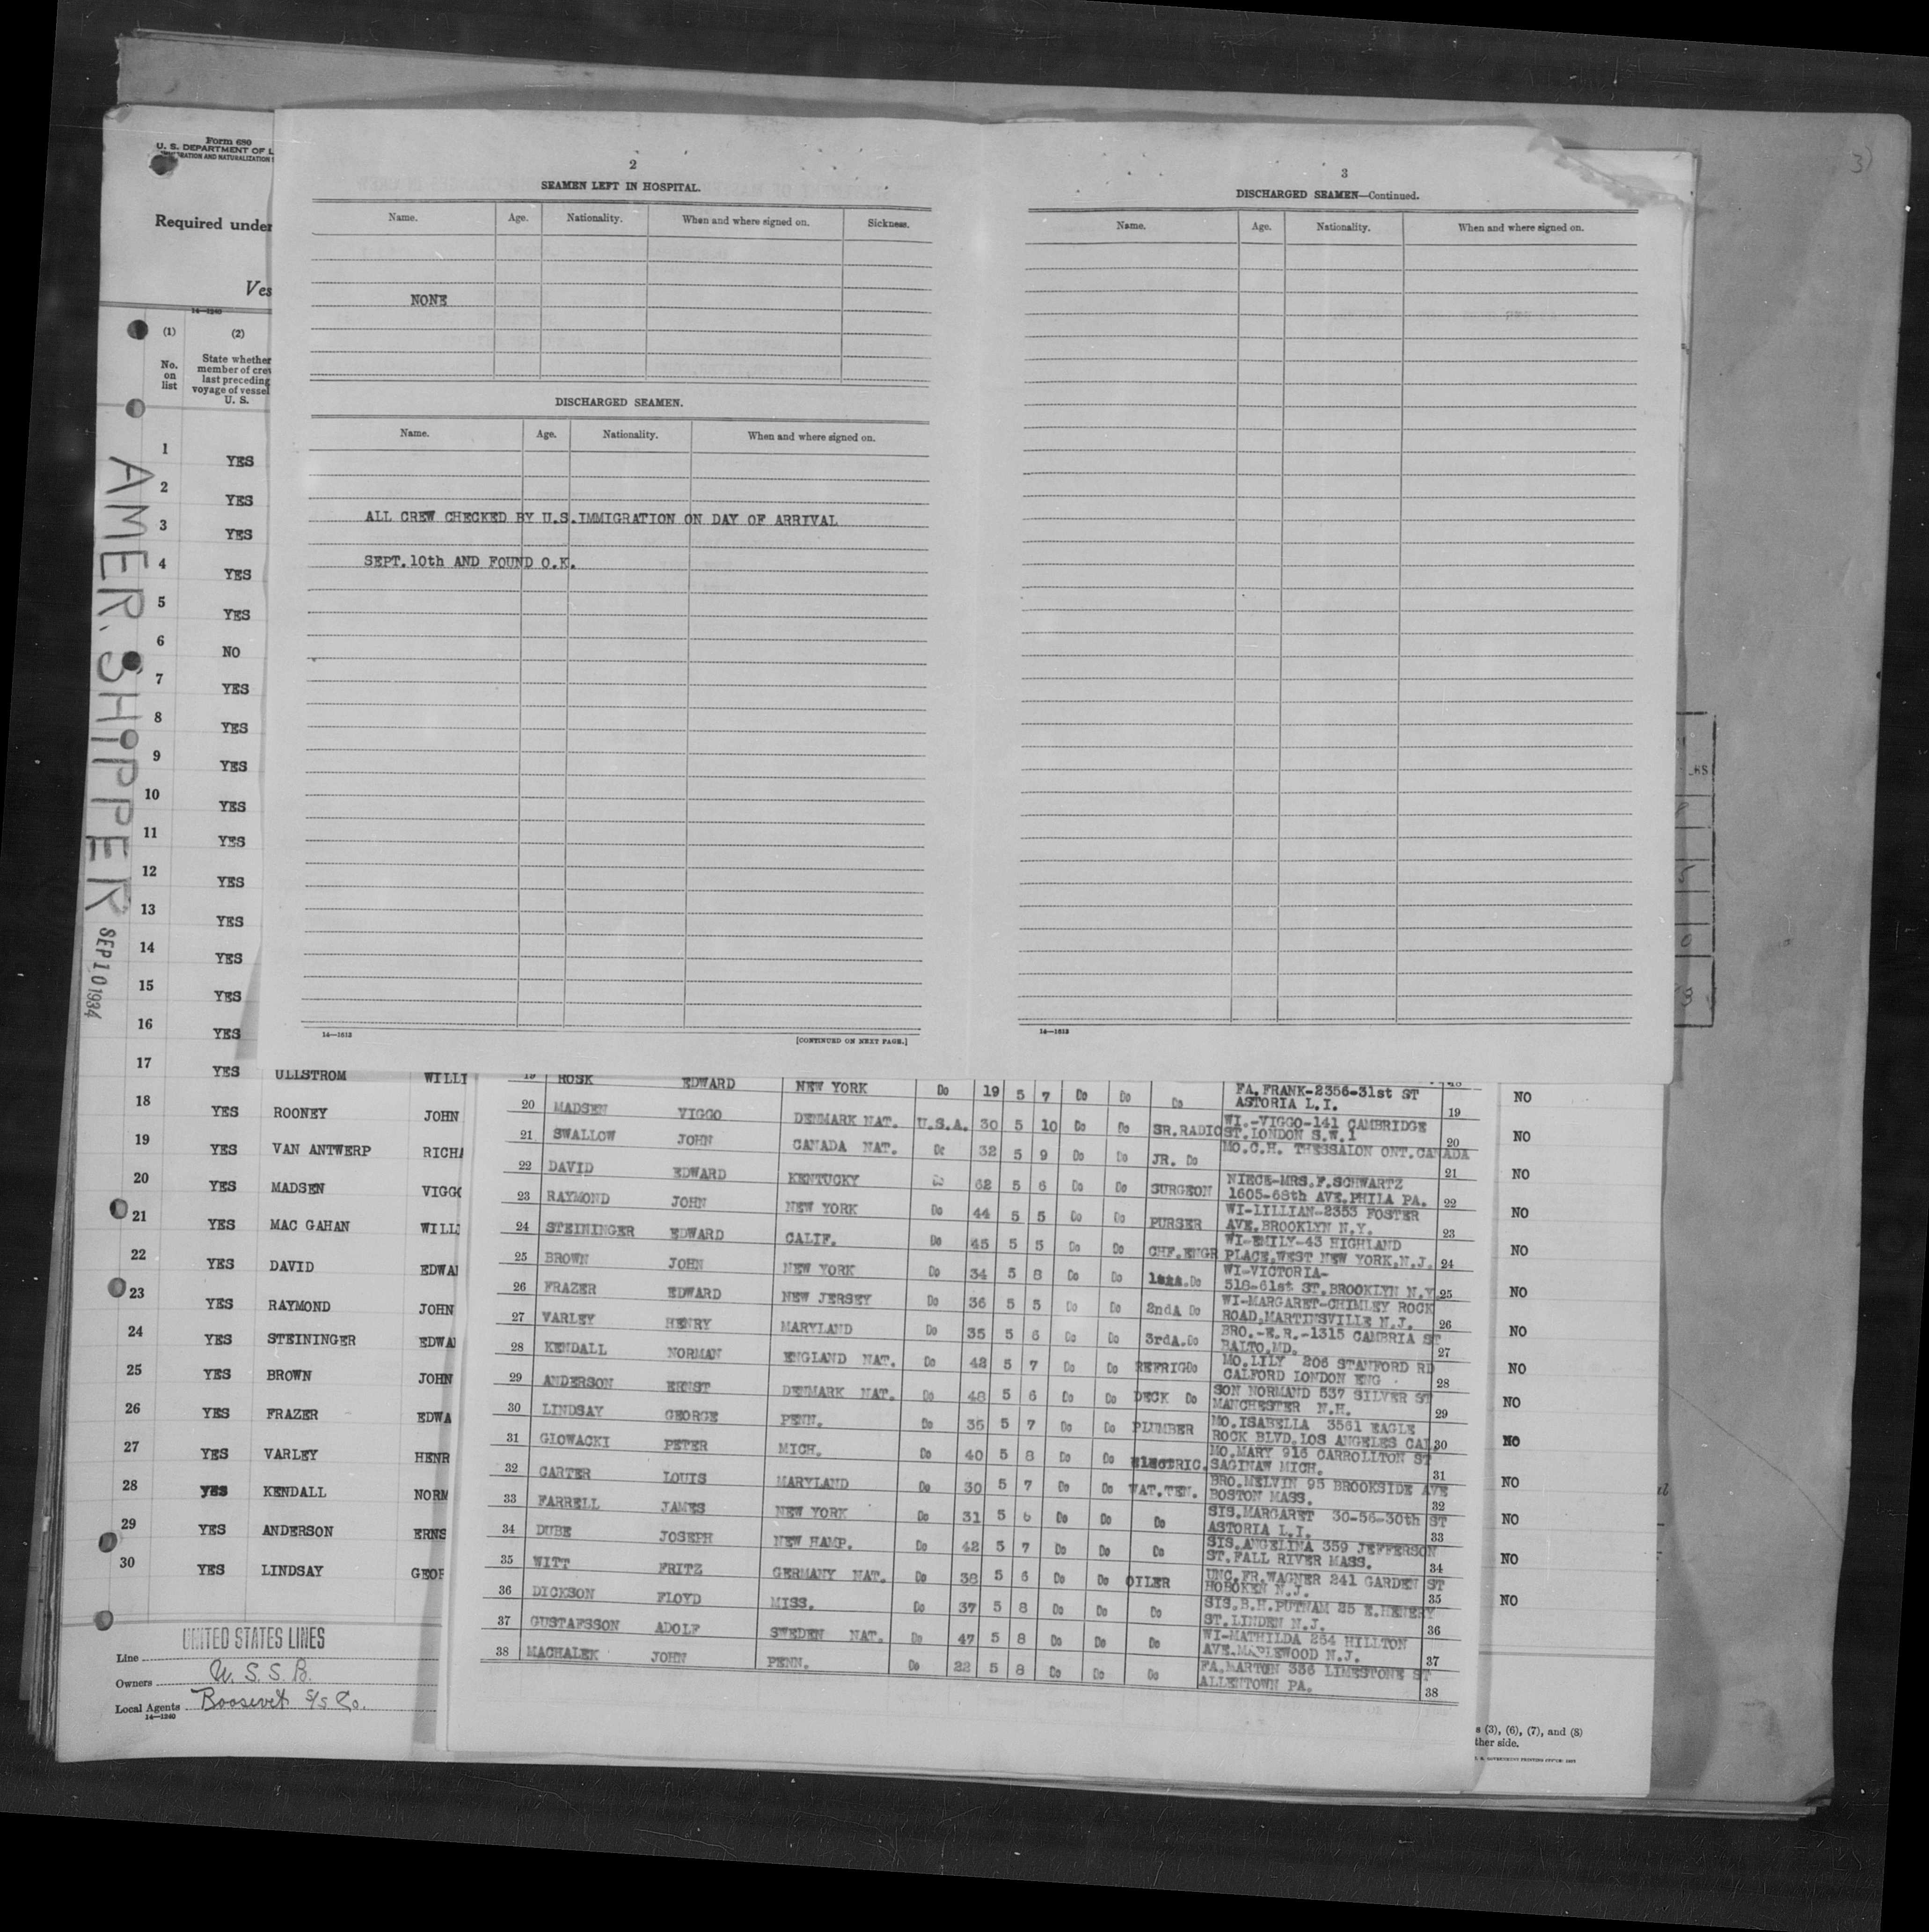 Form 680
U. S. DEPARTMENT OF L
RATION AND NATURALIZATION
Required under
Ves
14—1240
(1) (2)
No. on list
State whether
member of crew
last preceding
voyage of vessel
U. S.
1 YES
2 YES
3 YES
4 YES
5 YES
6 NO
7 YES
8 YES
9 YES
10 YES
11 YES
12 YES
13 YES
14 YES
15 YES
16 YES
17 YES ULLSTROM WILLI
18 YES ROONEY JOHN
19 YES VAN ANTWERP RICHA
20 YES MADSEN VIGGO
21 YES MAC GAHAN WILL
22 YES DAVID EDWA
23 YES RAYMOND JOHN
24 YES STEININGER EDWA
25 YES BROWN JOHN
26 YES FRAZER EDWA
27 YES VARLEY HENR
28 YES KENDALL NORM
29 YES ANDERSON ERNS
30 YES LINDSAY GEOR
AMER. SHIPPER
SEP 10 1934
UNITED STATES LINES
Line
Owners U. S. S. B.
Local Agents Roosevelt S/S Co.
14—1240
2
SEAMEN LEFT IN HOSPITAL.
Name. Age. Nationality. When and where signed on. Sickness.
NONE
DISCHARGED SEAMEN.
Name. Age. Nationality. When and where signed on.
ALL CREW CHECKED BY U.S.IMMIGRATION ON DAY OF ARRIVAL
SEPT.10th AND FOUND O.K.
14—1613
[CONTINUED ON NEXT PAGE.]
3
DISCHARGED SEAMEN—Continued.
Name. Age. Nationality. When and where signed on.
14—1613
3)
19 HOSK EDWARD NEW YORK Do 19 5 7 Do Do Do FA,FRANK-2356-31st ST
ASTORIA L.I. 19
20 MADSEN VIGGO DENMARK NAT. U.S.A. 30 5 10 Do Do SR.RADIO WI.-VIGGO-141 CAMBRIDGE
ST.LONDON S.W.1 20
21 SWALLOW JOHN CANADA NAT. Do 32 5 9 Do Do JR. Do MO.C.H. THESSALON ONT.CANADA
21
22 DAVID EDWARD KENTUCKY Do 62 5 6 Do Do SURGEON NIECE-MRS.F.SCHWARTZ
1605-68th AVE.PHILA PA. 22
23 RAYMOND JOHN NEW YORK Do 44 5 5 Do Do PURSER WI-LILLIAN-2353 FOSTER
AVE.BROOKLYN N.Y. 23
24 STEININGER EDWARD CALIF. Do 45 5 5 Do Do CHF.ENGR WI-EMILY-43 HIGHLAND
PLACE,WEST NEW YORK,N.J. 24
25 BROWN JOHN NEW YORK Do 34 5 8 Do Do 1stA.Do WI-VICTORIA-
518-61st ST.BROOKLYN N.Y. 25
26 FRAZER EDWARD NEW JERSEY Do 36 5 5 Do Do 2ndA Do WI-MARGARET-CHIMLEY ROCK
ROAD,MARTINSVILLE N.J. 26
27 VARLEY HENRY MARYLAND Do 35 5 6 Do Do 3rdA.Do BRO.-E.R.-1315 CAMBRIA ST
BALTO,MD. 27
28 KENDALL NORMAN ENGLAND NAT. Do 42 5 7 Do Do REFRIGDo MO.LILY 206 STANFORD RD
CALFORD LONDON ENG 28
29 ANDERSON ERNST DENMARK NAT. Do 48 5 6 Do Do DECK Do SON NORMAND 537 SILVER ST
MANCHESTER N.H. 29
30 LINDSAY GEORGE PENN. Do 36 5 7 Do Do PLUMBER MO.ISABELLA 3561 EAGLE
ROCK BLVD.LOS ANGELES CAL 30
31 GLOWACKI PETER MICH. Do 40 5 8 Do Do ELECTRIC. MO.MARY 916 CARROLLTON ST
SAGINAW MICH. 31
32 CARTER LOUIS MARYLAND Do 30 5 7 Do Do WAT.TEN. BRO.MELVIN 95 BROOKSIDE AVE
BOSTON MASS. 32
33 FARRELL JAMES NEW YORK Do 31 5 6 Do Do Do SIS.MARGARET 30-56-30th ST
ASTORIA L.I. 33
34 DUBE JOSEPH NEW HAMP. Do 42 5 7 Do Do Do SIS.ANGELINA 359 JEFFERSON
ST.FALL RIVER MASS. 34
35 WITT FRITZ GERMANY NAT. Do 38 5 6 Do Do OILER UNC.FR.WAGNER 241 GARDEN ST
HOBOKEN N.J. 35
36 DICKSON FLOYD MISS. Do 37 5 8 Do Do Do SIS.B.H.PUTNAM 25 E.HENERY
ST.LINDEN N.J. 36
37 GUSTAFSSON ADOLF SWEDEN NAT. Do 47 5 8 Do Do Do WI-MATHILDA 254 HILLTON
AVE.MAPLEWOOD N.J. 37
38 MACHALEK JOHN PENN. Do 22 5 8 Do Do Do FA.MARTON 336 LIMESTONE ST
ALLENTOWN PA. 38
NO
NO
NO
NO
NO
NO
NO
NO
NO
NO
NO
NO
NO
NO
s (3), (6), (7), and (8)
ther side.